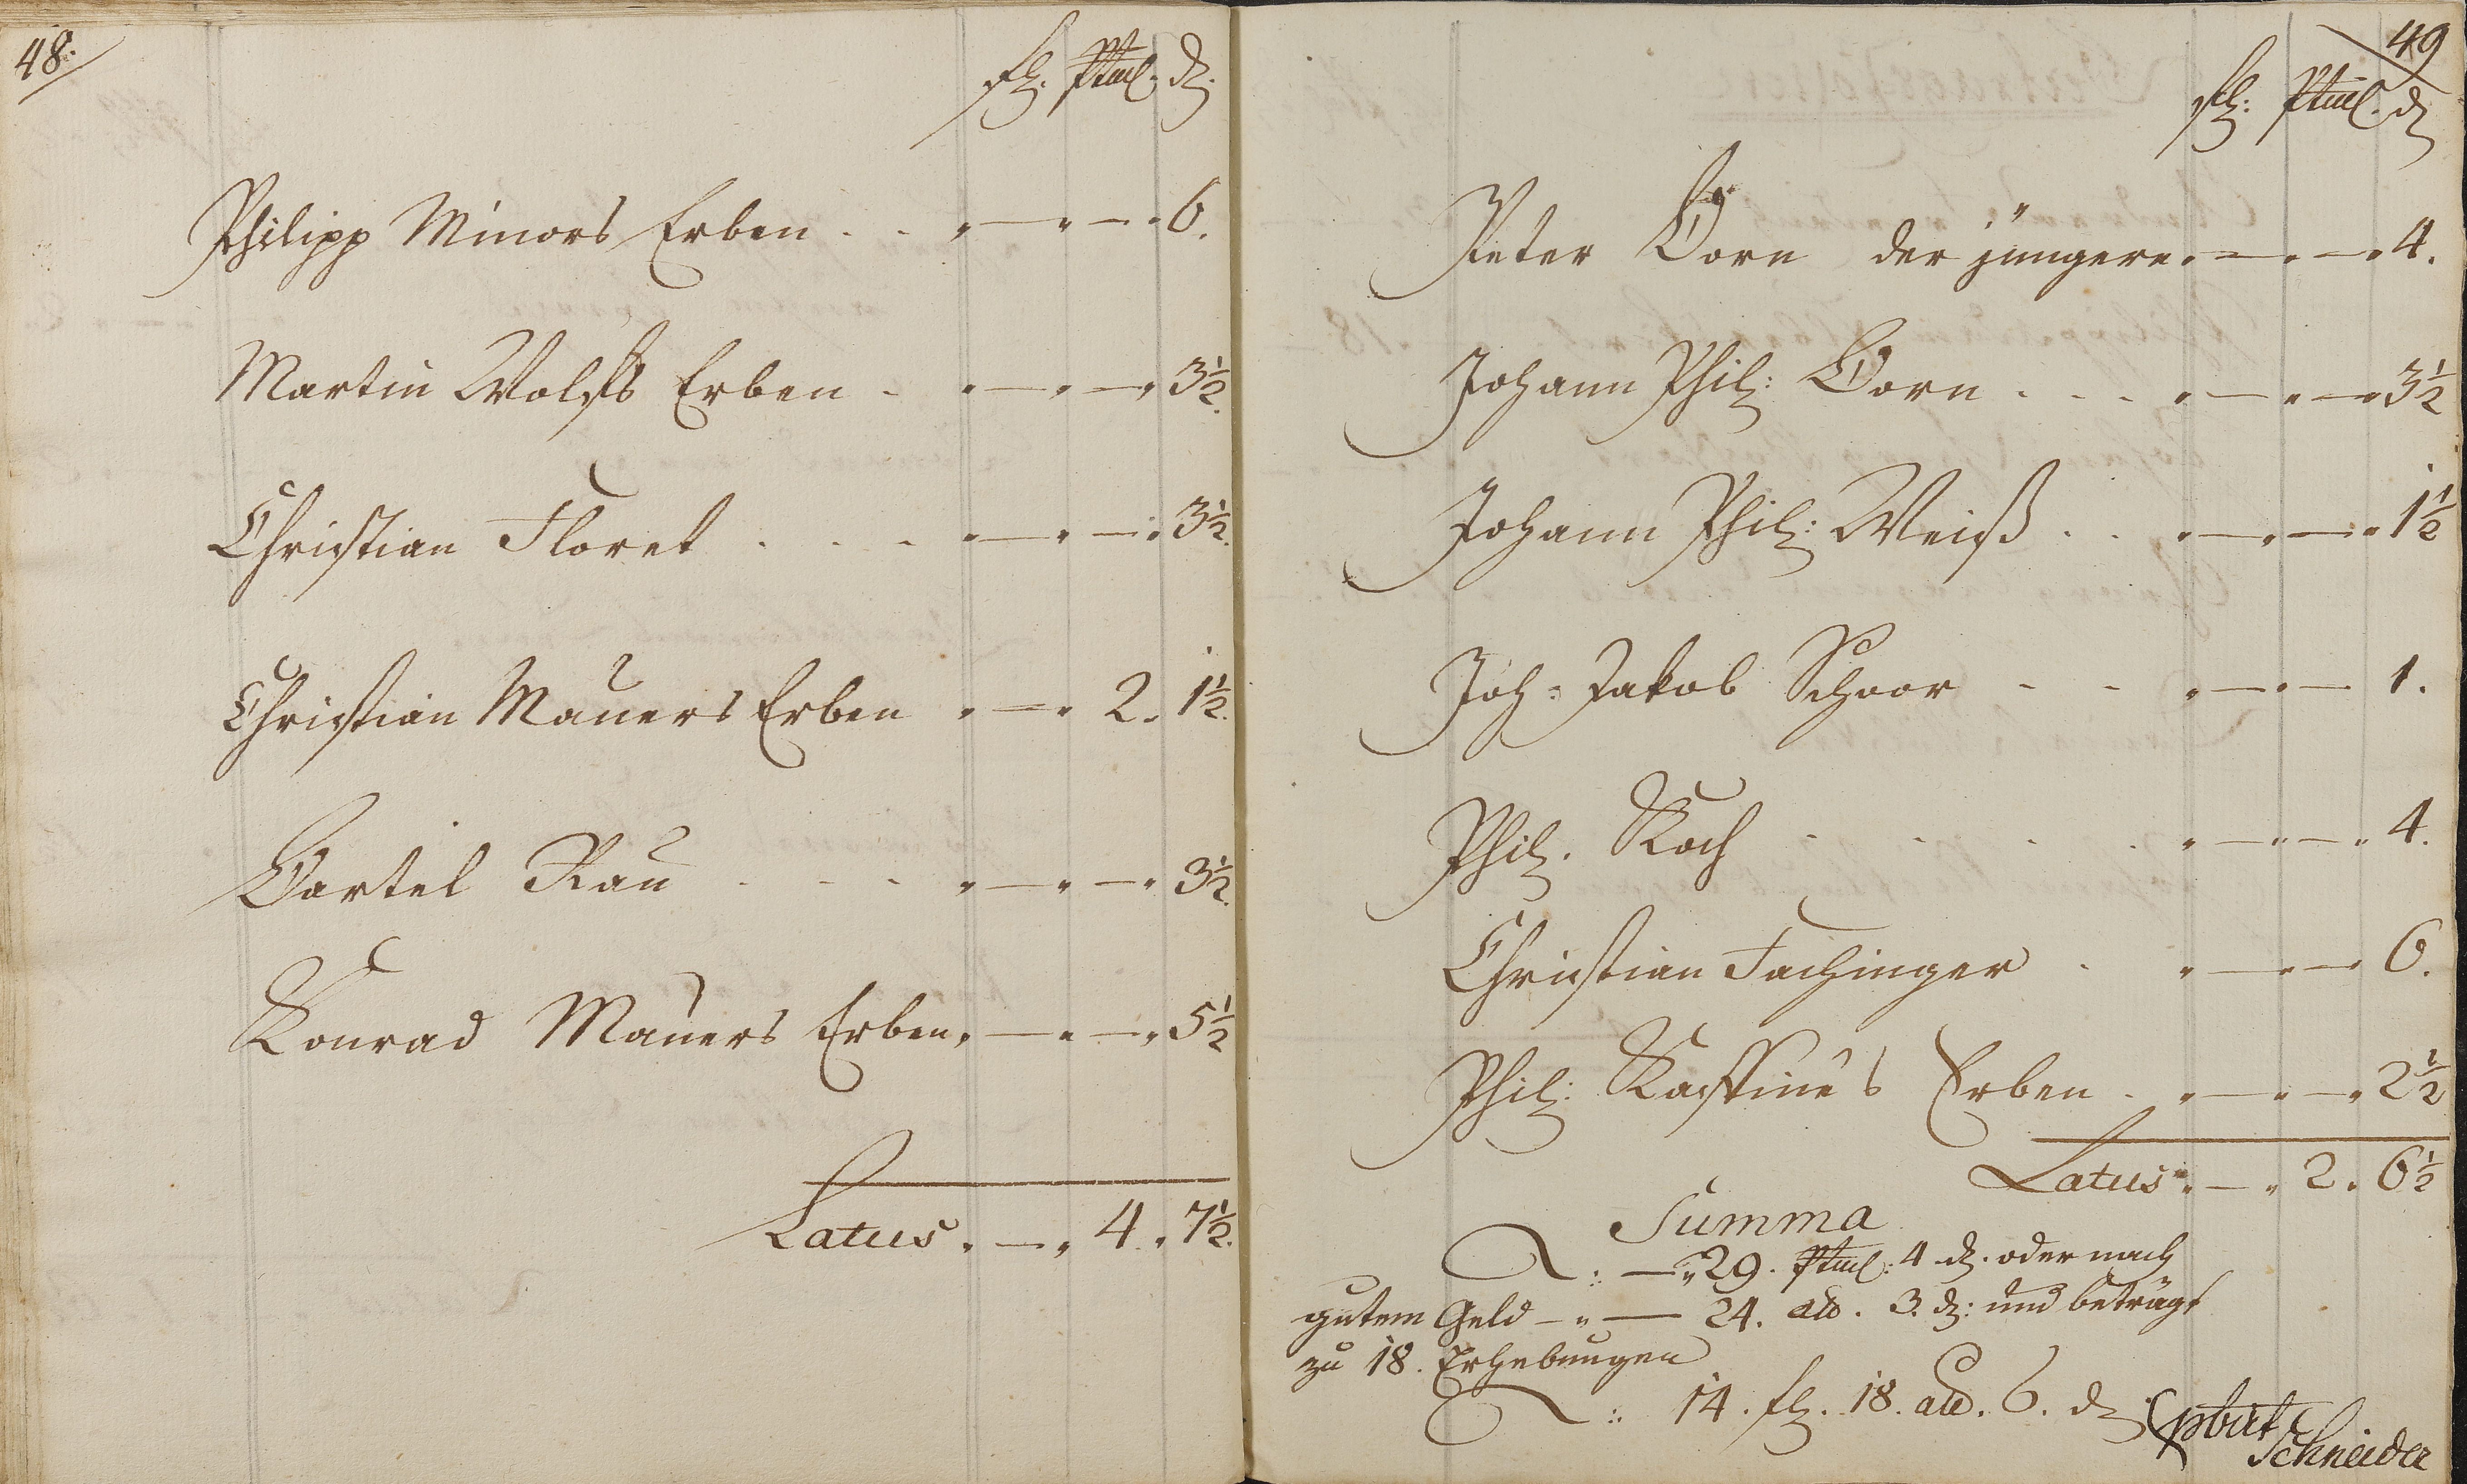 48.
fl. Ptml. d.
Philipp Minors Erben . . " — " — " 6.
Martin Wolfs Erben . " — " — " 3½.
Christian Floret . . . " — " — " 3½.
Christian Mauers Erben " — " 2. 1½.
Bartel Rau . . . " — " — " 3½.
Konrad Mauers Erben " — " — " 5½
Latus . — " 4. 7½.
49
fl. Ptml. d
Peter Dorn der jüngere " — " — " 4.
Johann Phil: Dorn . . . " — " — " 3½
Johann Phil: Weiß . . " — " — " 1½
Joh. Jakob Schoor - - " — " — 1.
Phil. Koch . . . . " — " — " 4.
Christian Fachinger . " — " — 6.
Phil: Erben . " — " — " 2½
Latus " — " 2. 6½
Summa
: — " 29. Ptml: 4 d. oder nach
gutem Geld — " — 24. alb. 3. d: und beträgt
zu 18. Erhebungen
: 14. fl. 18. alb. 6. d
Schneider